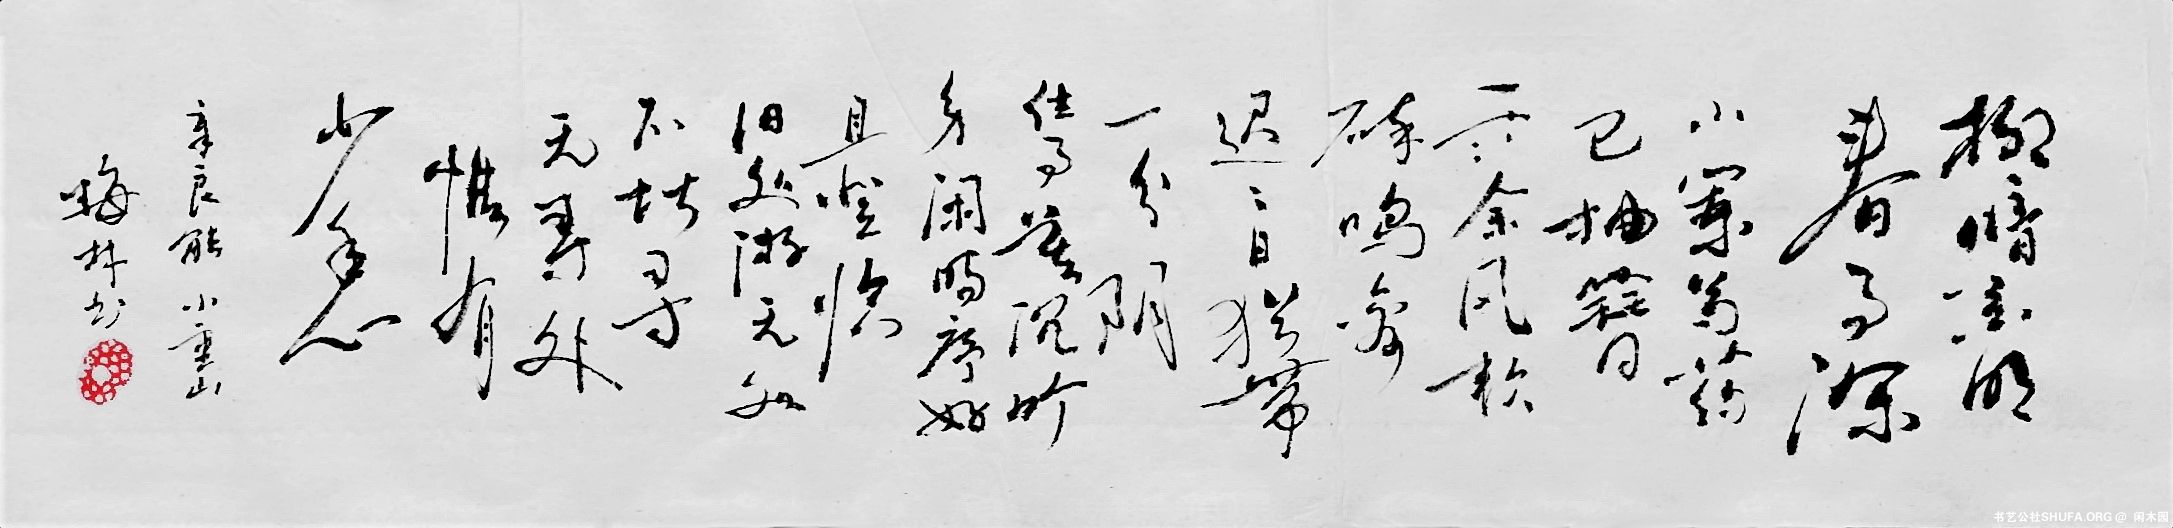 柳暗花明
春事深
小阑芍药
已抽簪
雨余风软
碎鸣禽
迟迟日犹带
一分阴
往事莫沉吟
身闲时序好
且登临
旧游无处
不堪寻
无寻处
惟有
少年心
章良能小重山
梅林书
书艺公社SHUFA.ORG @ 闲木园